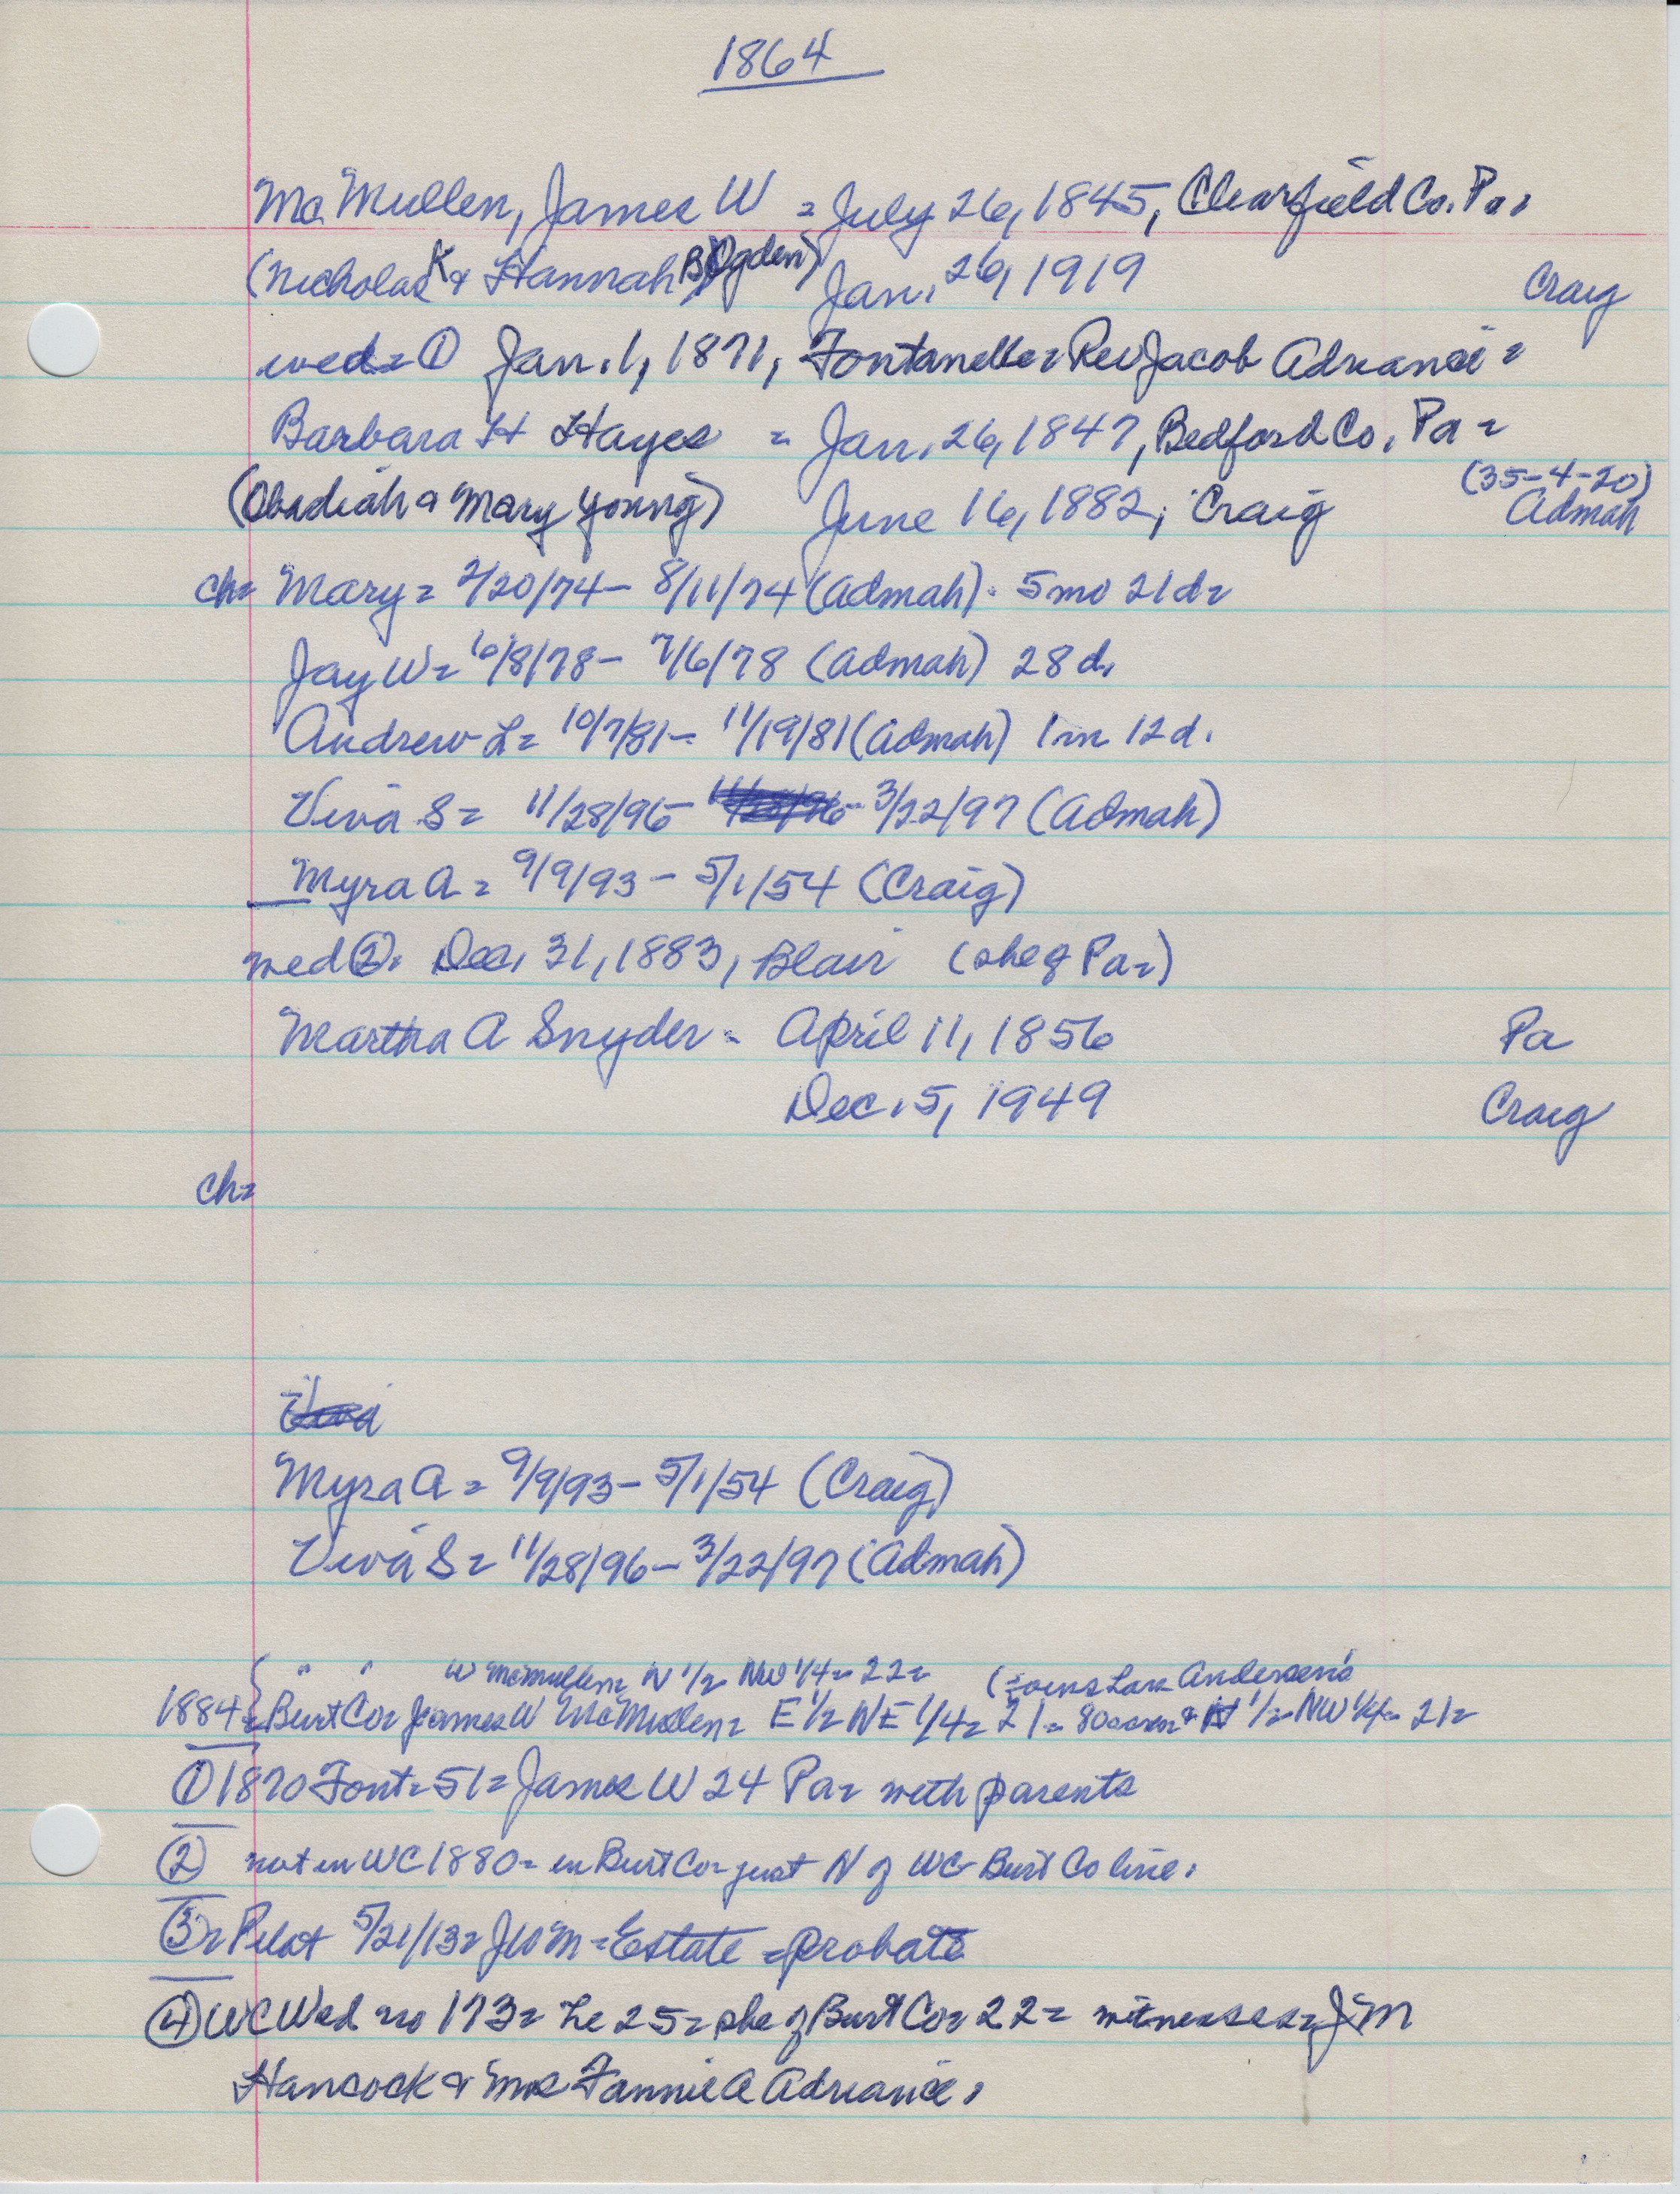 1864
McMullen, James W = July 26, 1845, Clearfield Co. Pa.
(Nicholas K & Hannah B Ogden) Jan. 26, 1919 Craig
wed = ① Jan. 1, 1871, Fontanelle = Rev Jacob Adriance =
Barbara H Hayes = Jan. 26, 1847, Bedford Co. Pa =
(35-4-20)
(Obadiah & Mary Young) June 16, 1882, Craig Admah
ch = Mary = 2/20/74 - 8/11/74 (Admah). 5 mo 21 d =
Jay W = 6/8/78 - 7/6/78 (Admah) 28 d.
Andrew L = 10/7/81 - 11/19/81 (Admah) 1 m 12 d.
Viva S = 11/28/96 - 3/22/97 (Admah)
Myra A = 9/9/93 - 5/1/54 (Craig)
wed ② = Dec. 31, 1883, Blair (she of Pa =)
Martha A Snyder = April 11, 1856 Pa
Dec. 5, 1949 Craig
ch =
Viva
Myra A = 9/9/93 - 5/1/54 (Craig)
Viva S = 11/28/96 - 3/22/97 (Admah)
" " W McMullen = N 1/2 = NW 1/4 = 22 = (= joins Lars Andersen's
1884 = { Burt Co = James W McMullen = E 1/2 NE 1/4 = 21 = 80 acres & 1/2 = NW 1/4 = 21 =
① 1870 Font = 51 = James W 24 Pa = with parents
② not in WC 1880 = in Burt Co = just N of WC - Burt Co line.
③ = Pilot 5/21/13 = JWM = Estate = probate
④ WC Wed no 173 = he 25 = she of Burt Co = 22 = witnesses = J M
Hancock & Mrs Fannie A Adriance.